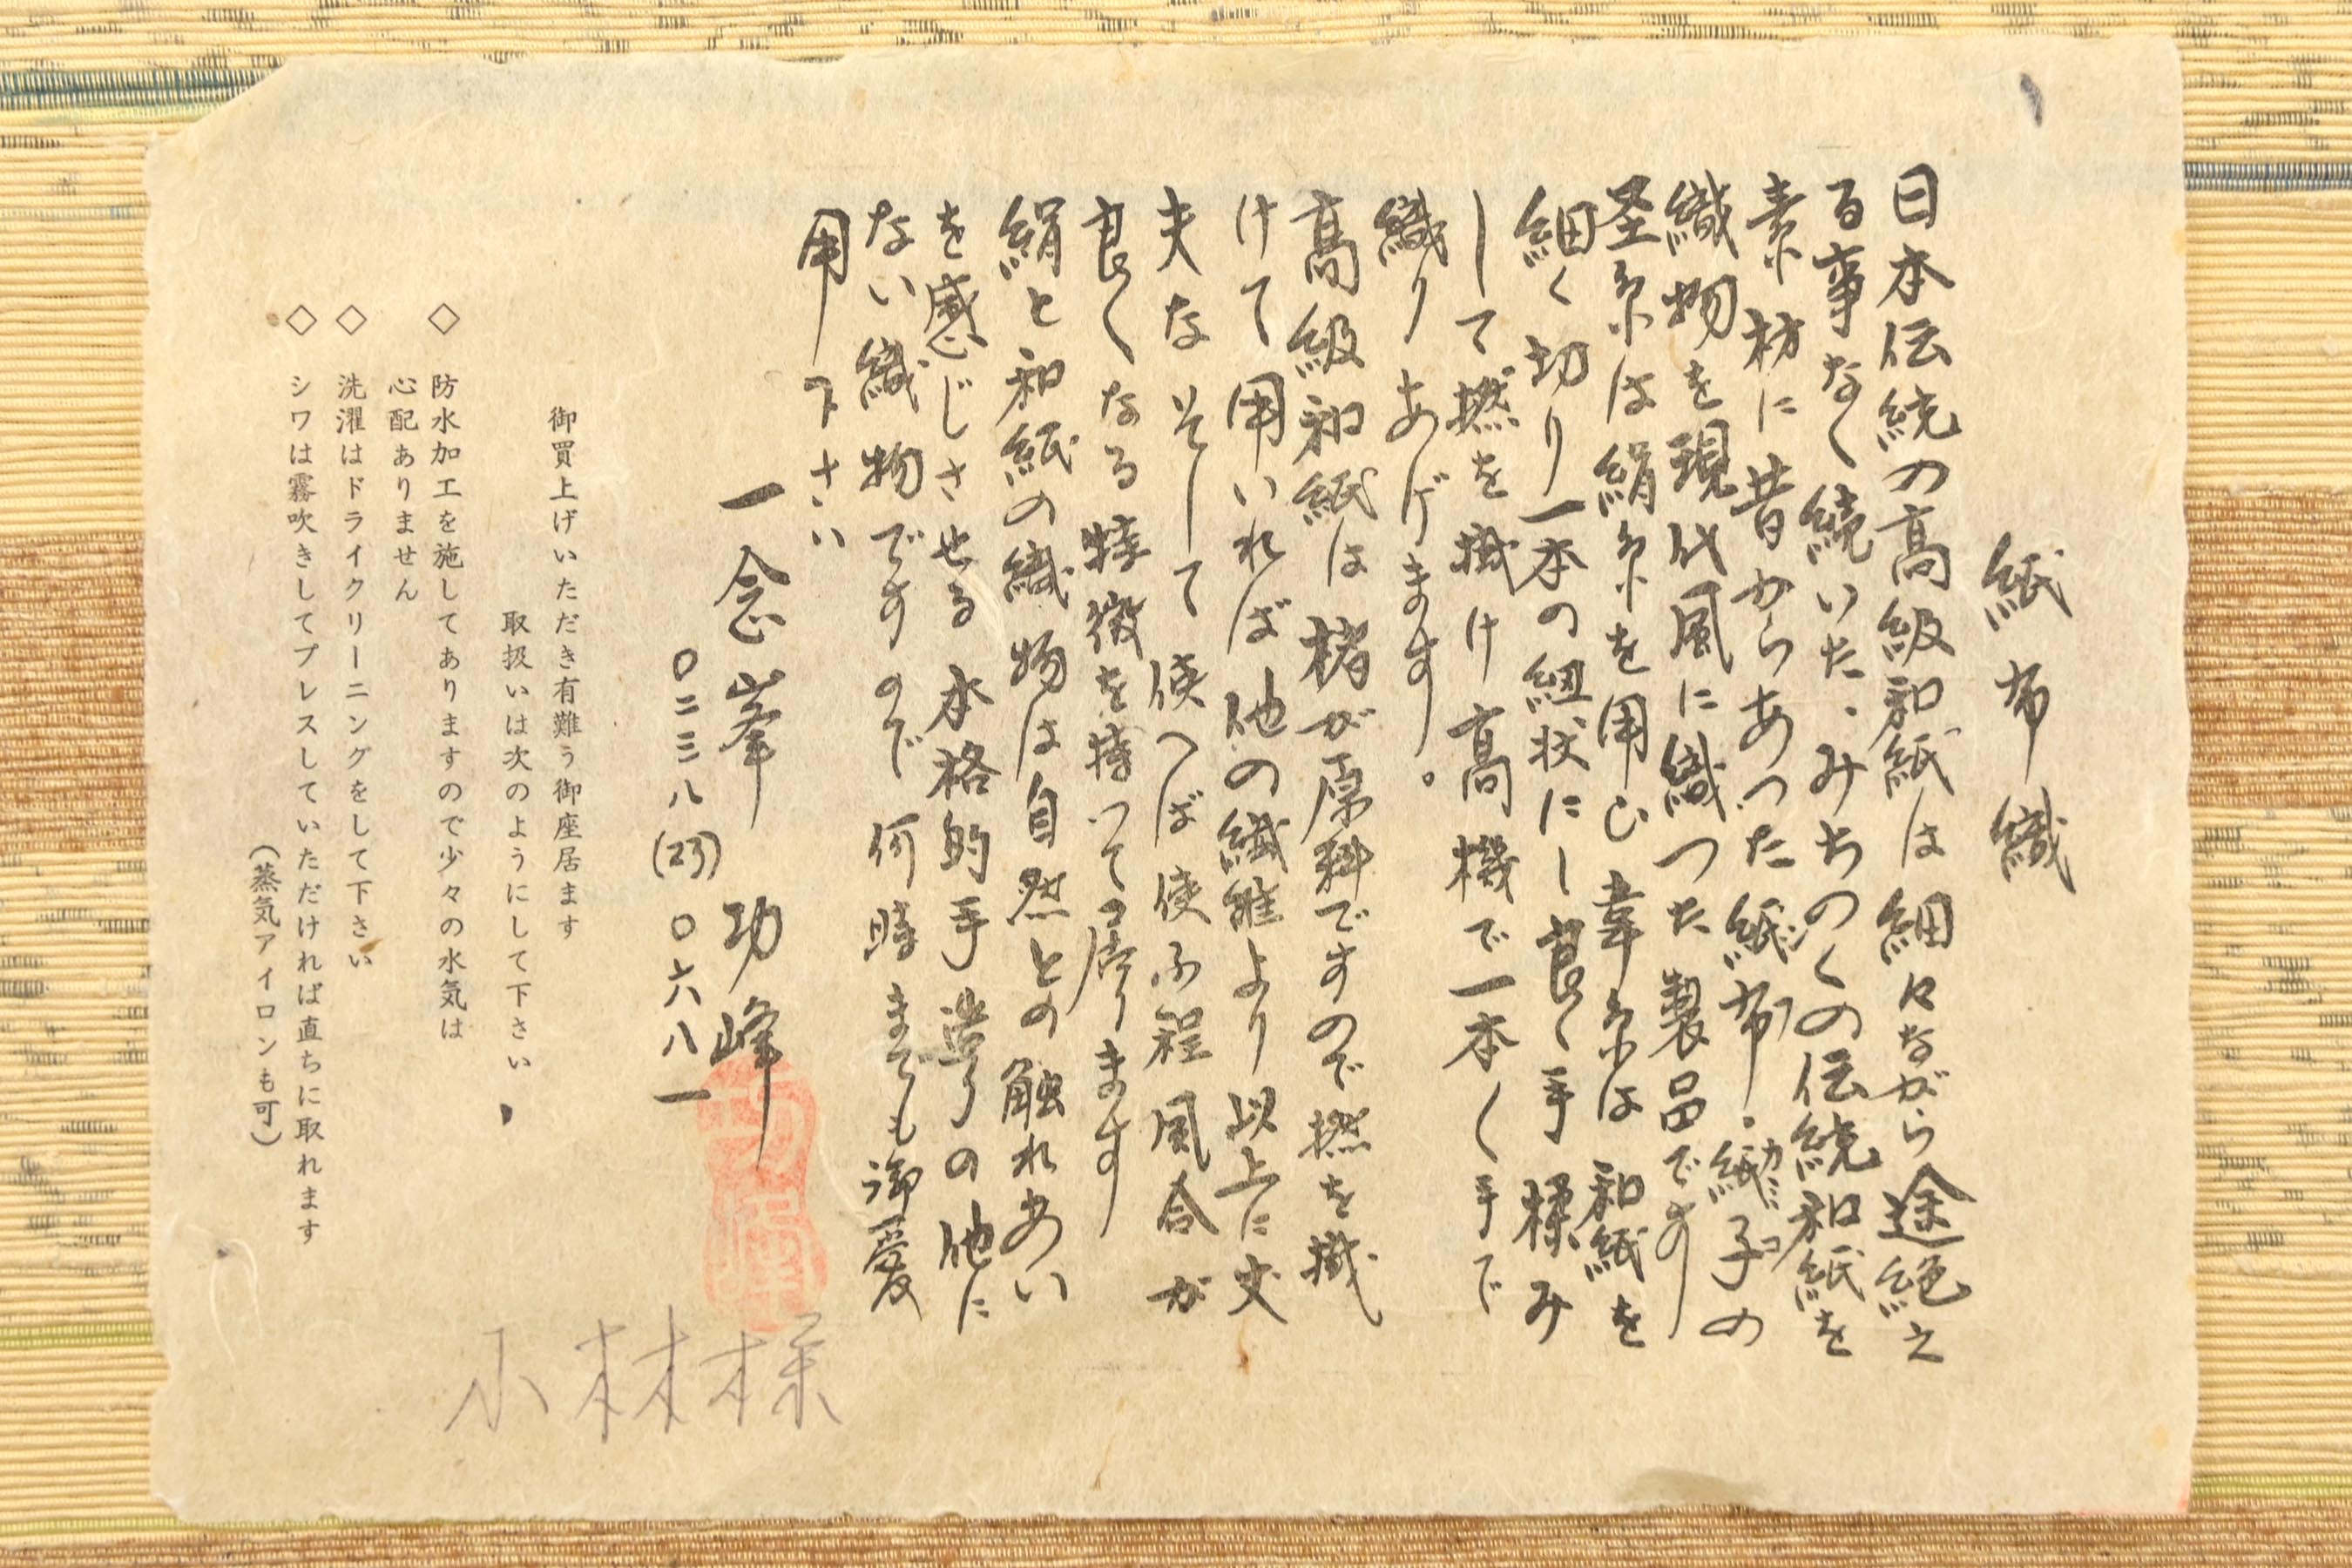 紙布織
日本伝統の高級和紙は細々ながら途絶え
る事なく続いた、みちのくの伝統和紙を
素材に昔からあった紙布・紙子の
フ
カミコ
織物を現代風に織つた製品です
圣糸は絹糸を用ひ韋糸は和紙を
細く切り一本の紐状にし良く手揉み
して撚を掛け高機で一本〱手で
織りあげます。
高級和紙は楮が原料ですので撚を掛
けて用いれば他の繊維より以上に丈
夫なそして使へば使ふ程風合が
良くなる特徴を持って居ります
絹と和紙の織物は自然との触れあい
を感じさせる本格的手造りの他に
ない織物ですので何時までも御愛
用下さい
一念峯 功峰
〇二三八(23)〇六八一
功峰
御買上げいただき有難う御座居ます
取扱いは次のようにして下さい
◇ 防水加工を施してありますので少々の水気は
心配ありません
◇ 洗濯はドライクリーニングをして下さい
◇ シワは霧吹きしてプレスしていただければ直ちに取れます
(蒸気アイロンも可)
小林様